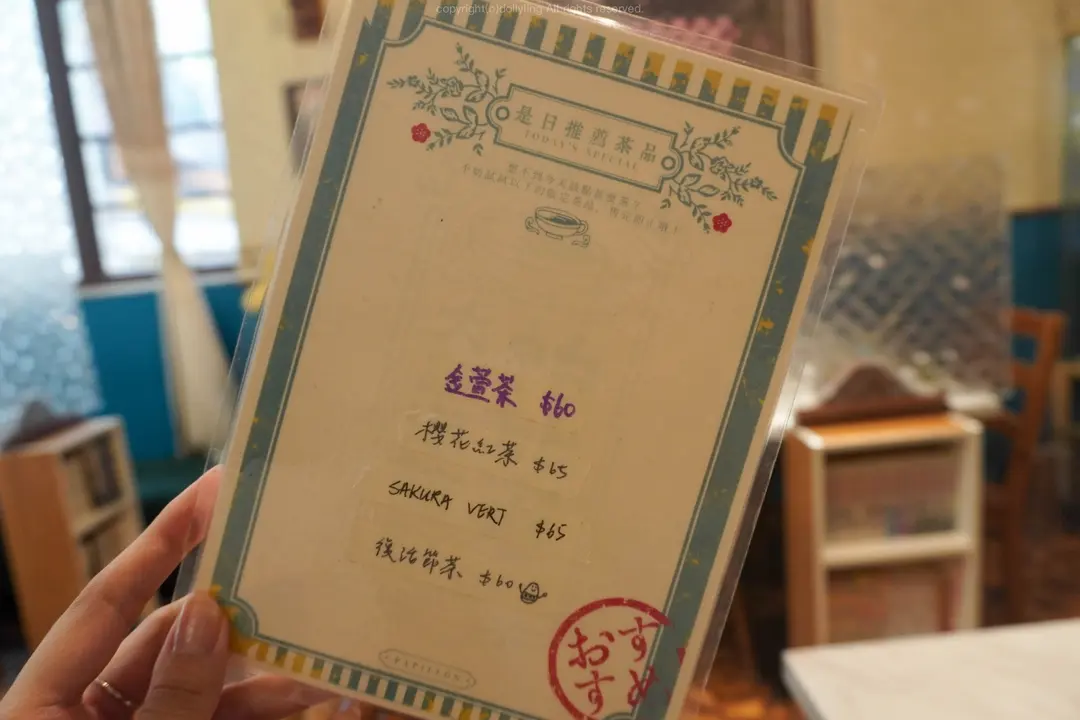 copyright(c)dollyling Allrights reserved.
是日推薦茶品
TODAY'S SPECIAL
想不到今天該點甚麼茶？
不妨試試以下的限定茶品，
金萱茶 $60
櫻花紅茶 $65
SAKURA VERT $65
復活節茶 $60
PAPILLON
おすすめ